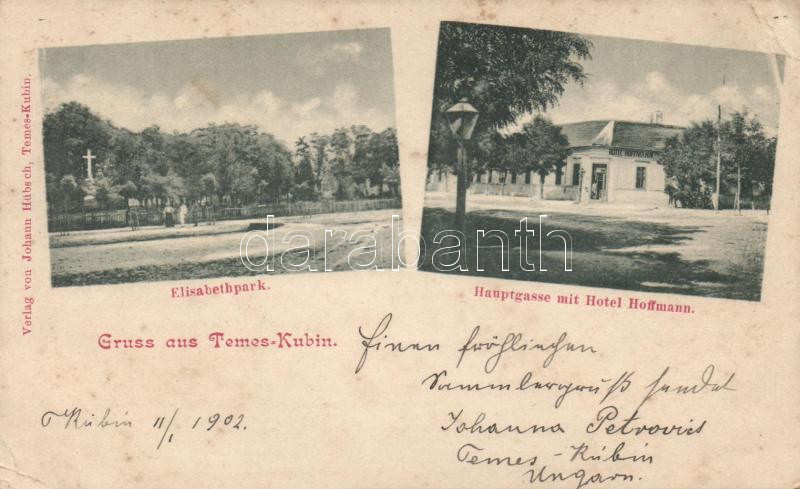 Verlag von Johann Hübsch, Temes-Kubin.
HOTEL HOFFMANN
darabanth
Elisabethpark.
Hauptgasse mit Hotel Hoffmann.
Gruss aus Temes-Kubin.
Einen fröhlichen
Sammlergruß sendet
Johanna Petrovics
Temes-Kubin
Ungarn.
T Kubin 11/1 1902.